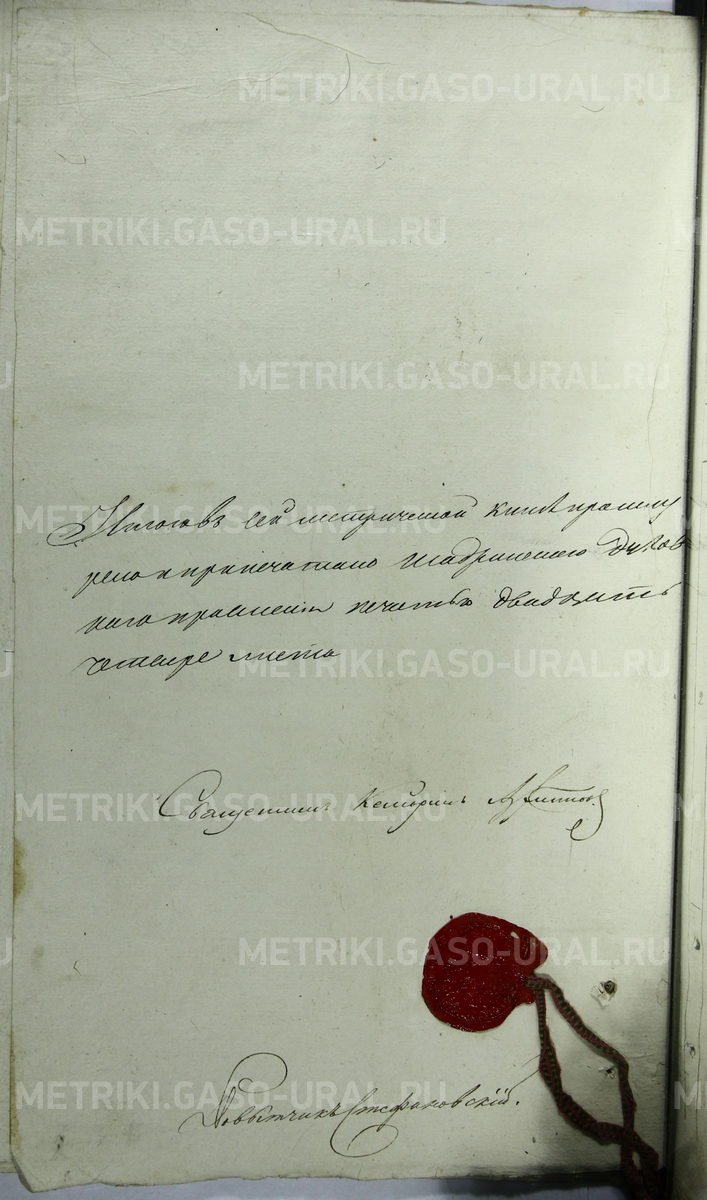 METRIKI.GASO-URAL.RU
METRIKI.GASO-URAL.RU
METRIKI.GASO-URAL.RU
Итого въ сей метрической книге прошну
рено и припечатано Шадринскаго Духов
наго правленія печатью двадцать
METRIKI.GASO-URAL.RU
четыре листа
METRIKI.GASO-URAL.RU
Священникъ
METRIKI.GASO-URAL.RU
METRIKI.GASO-URAL.RU
Повытчикъ Стефановскій.
METRIKI.GASO-URAL.RU